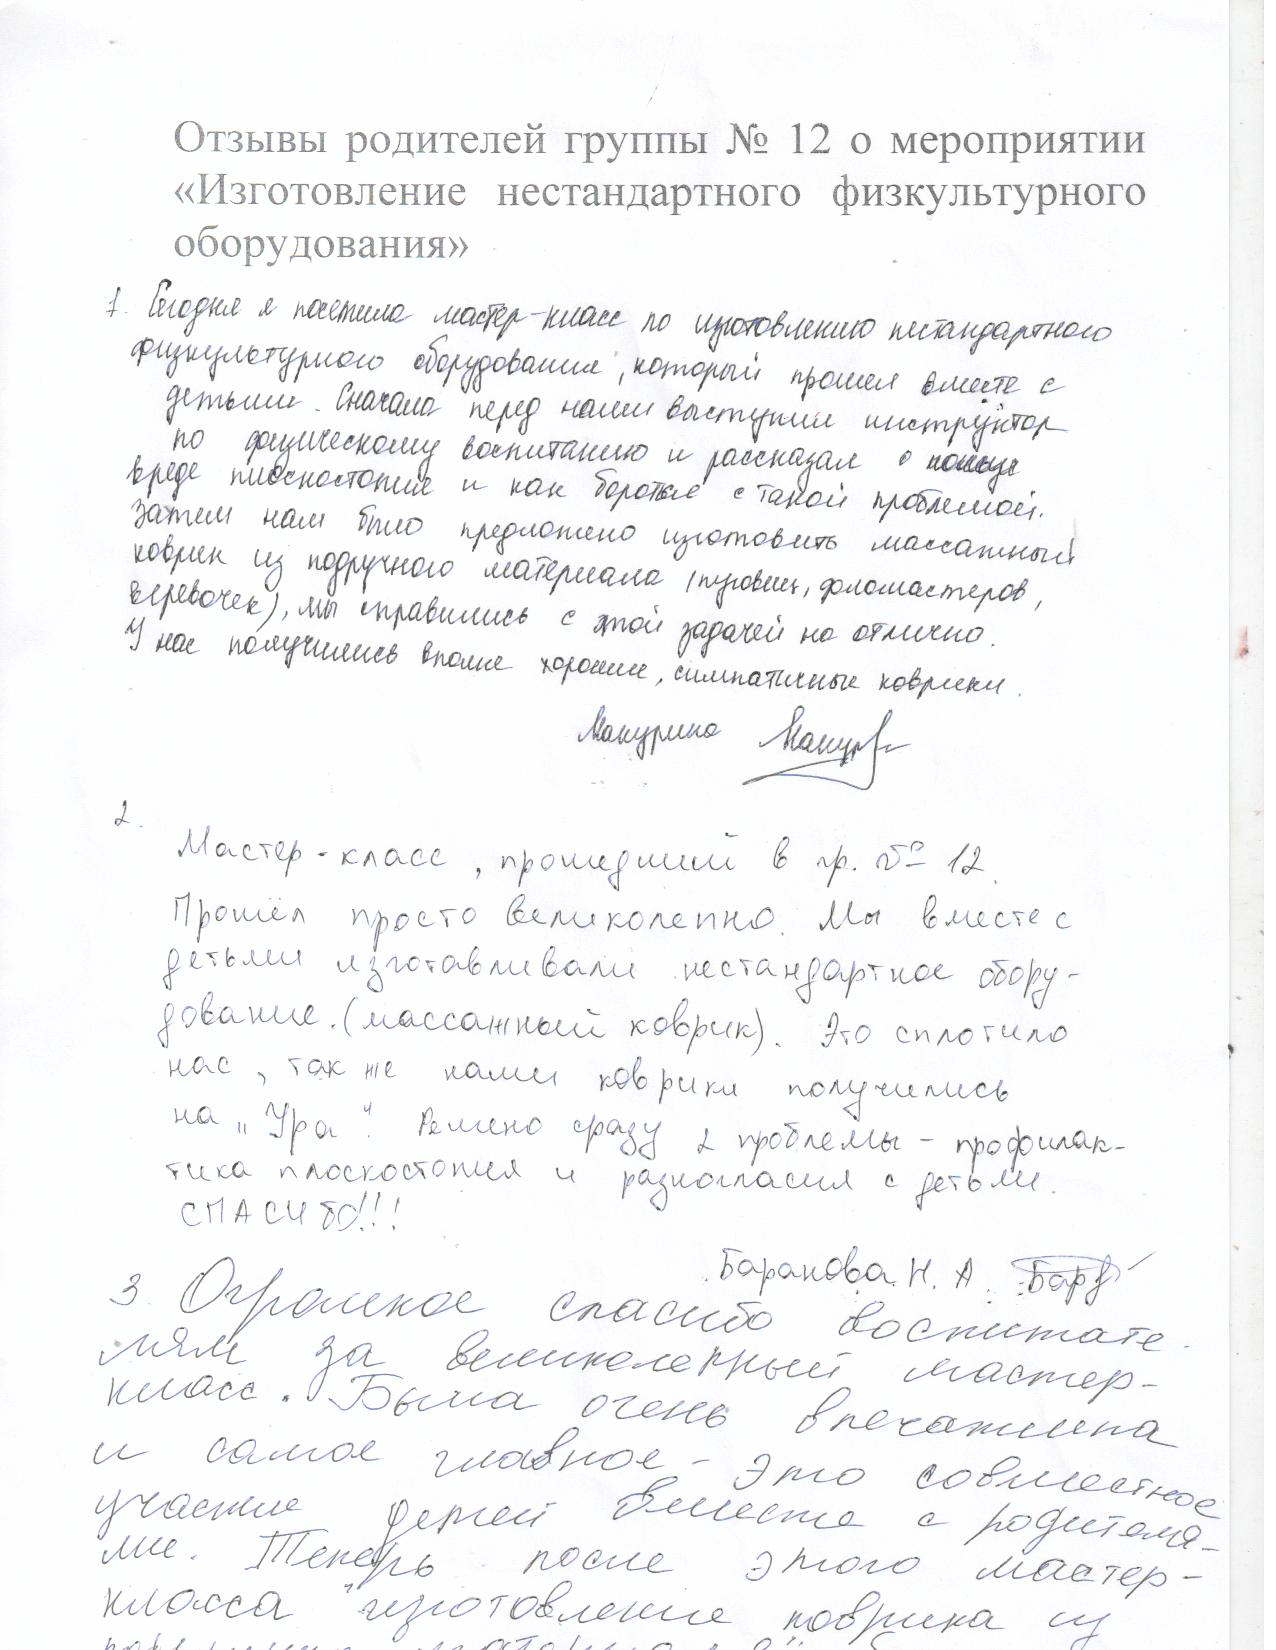 Отзывы родителей группы № 12 о мероприятии
«Изготовление нестандартного физкультурного
оборудования»
1. Сегодня я посетила мастер-класс по изготовлению нестандартного
физкультурного оборудования, который прошел вместе с
детьми. Сначала перед нами выступил инструктор
по физическому воспитанию и рассказал о
вреде плоскостопия и как бороться с такой проблемой.
Затем нам было предложено изготовить массажный
коврик из подручного материала (пуговиц, фломастеров,
веревочек), мы справились с этой задачей на отлично.
У нас получились вполне хорошие, симпатичные коврики.
Макурина
2.
Мастер-класс, прошедший в гр. № 12.
Прошёл просто великолепно. Мы вместе с
детьми изготавливали нестандартное обору-
дование. (массажный коврик). Это сплотило
нас, так же нами коврики получились
на „Ура". Решено сразу 2 проблемы - профилак-
тика плоскостопия и разногласия с детьми.
СПАСИБО!!!
Баранова Н. А.
3. Огромное спасибо воспитате
лям за великолепный мастер-
класс. Была очень впечатлина
и самое главное - это совместное
участие детей вместе с родителя-
ми. Теперь после этого мастер-
класса "изготовление коврика из